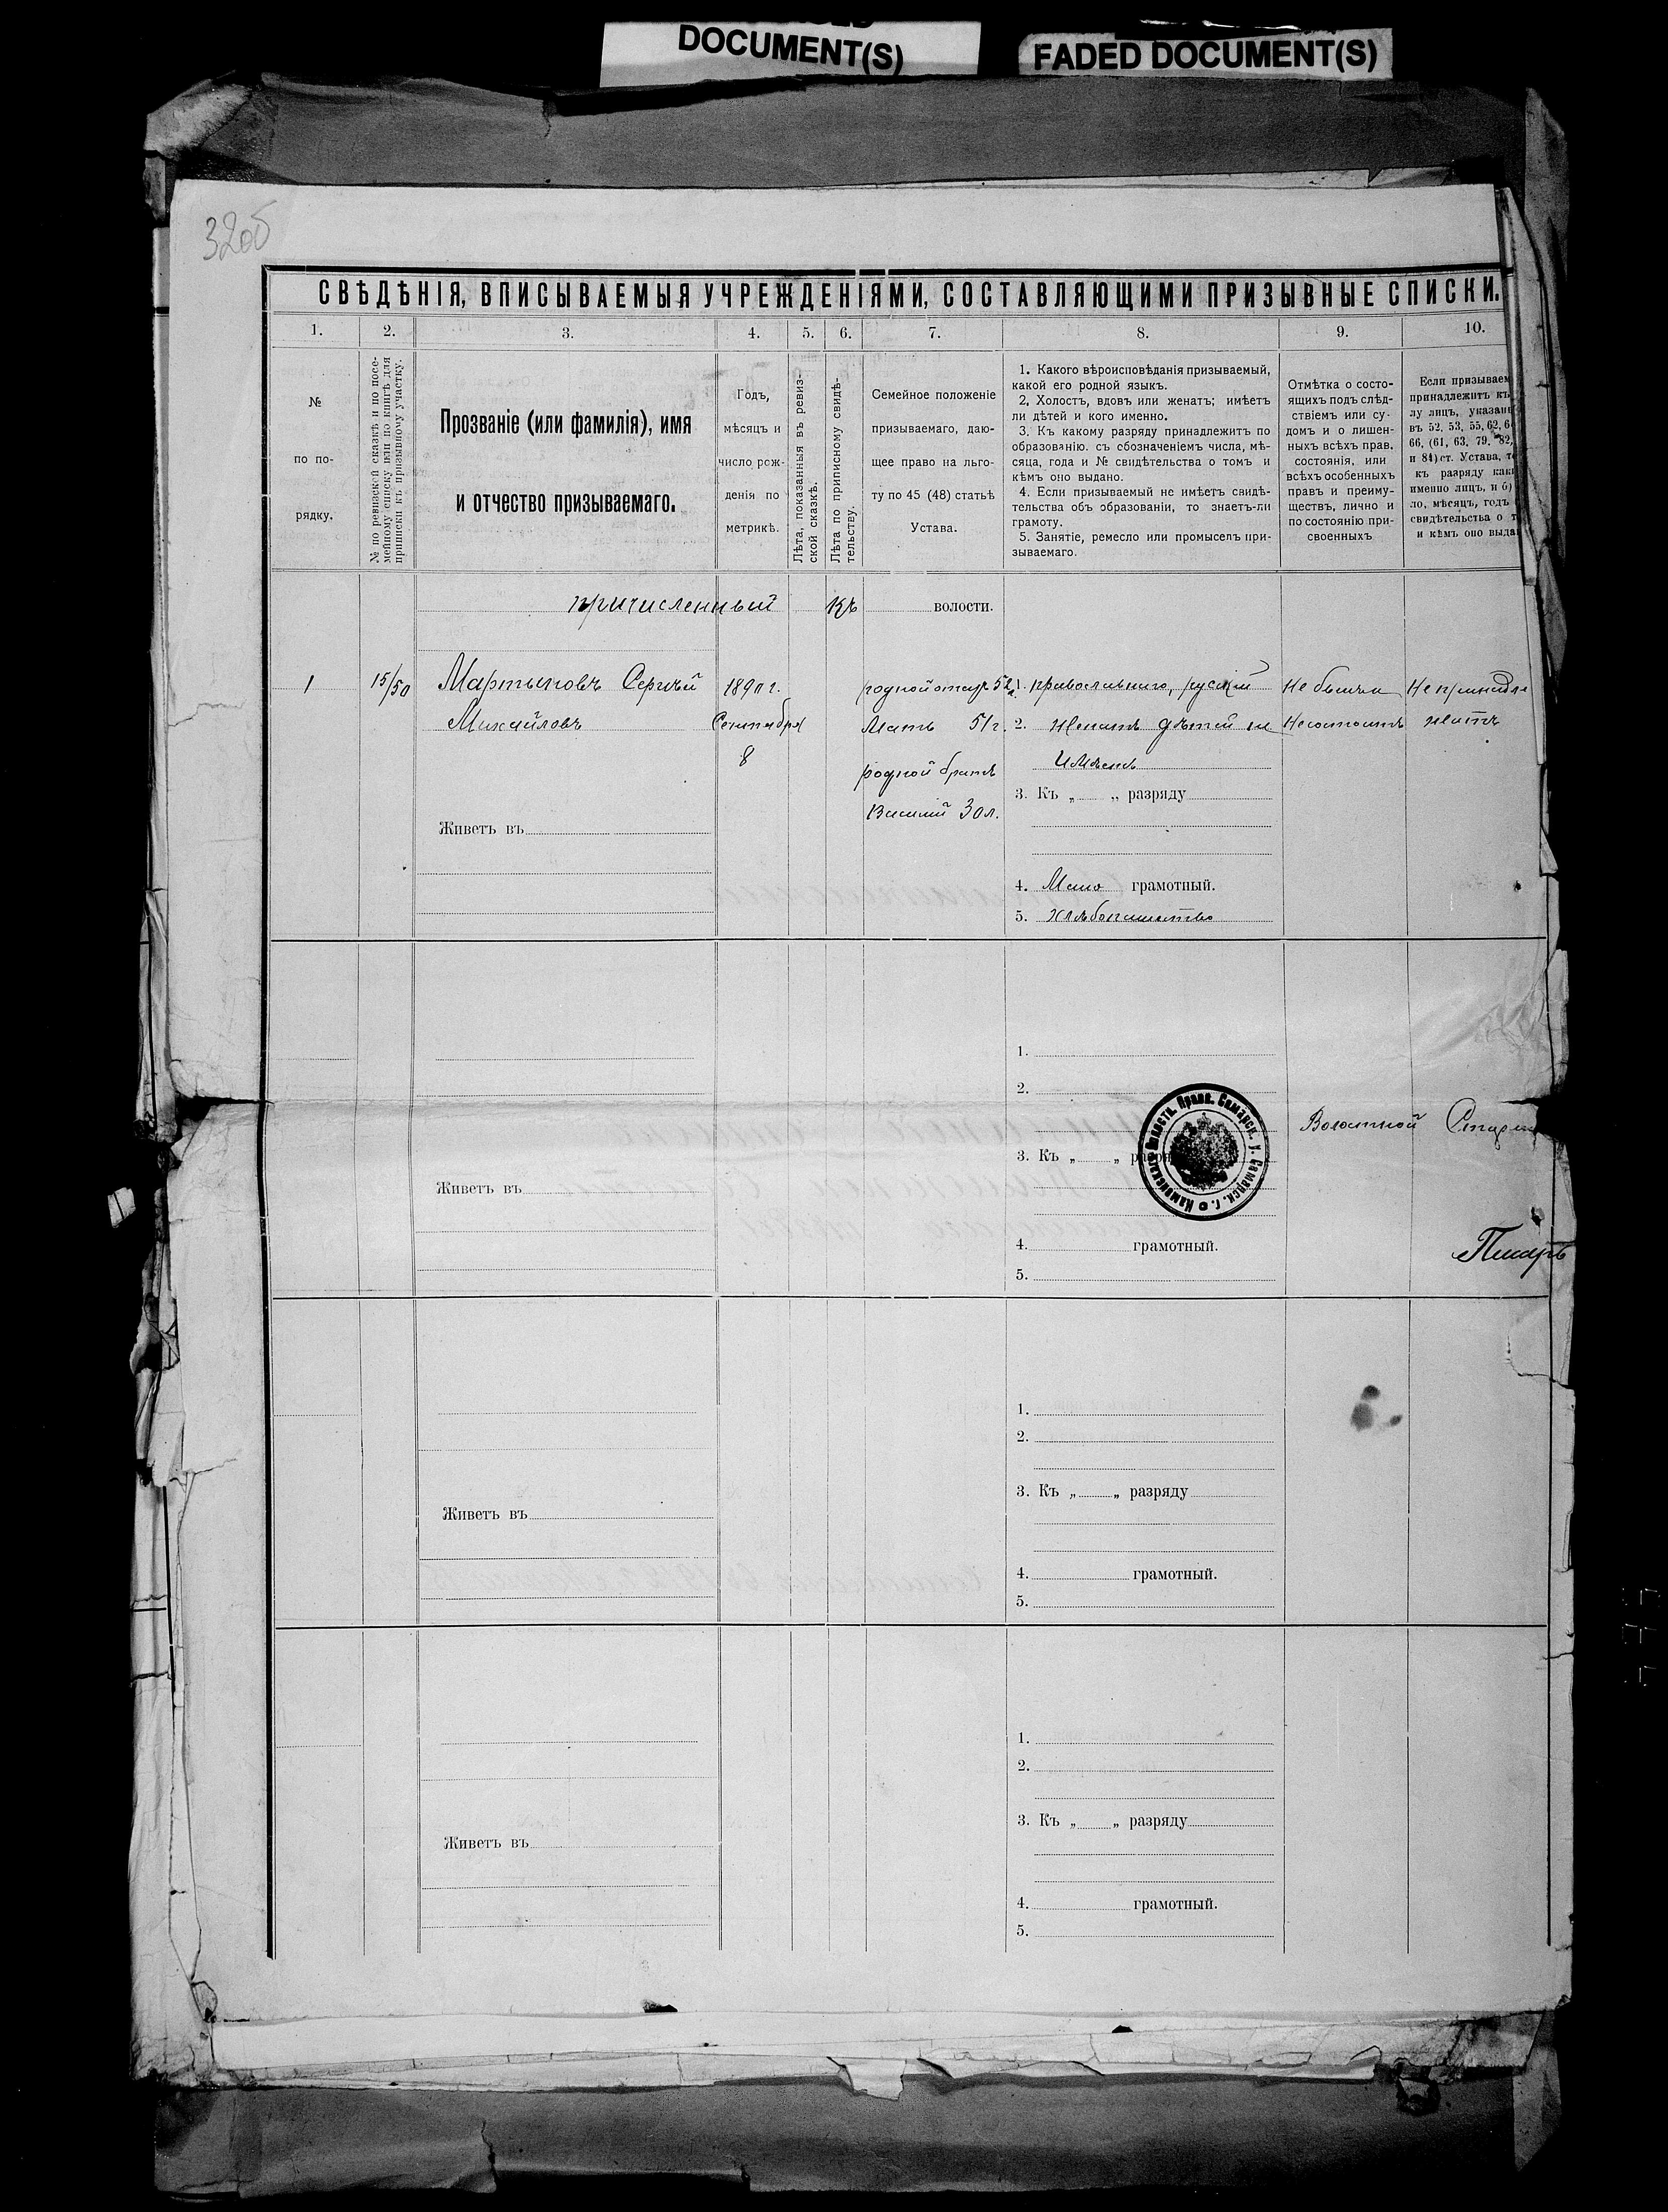 DOCUMENT(S)
FADED DOCUMENT(S)
320б
СВѢДѢНІЯ, ВПИСЫВАЕМЫЯ УЧРЕЖДЕНІЯМИ, СОСТАВЛЯЮЩИМИ ПРИЗЫВНЫЕ СПИСКИ.
1. 2. 3. 4. 5. 6. 7. 8. 9. 10.
№
по по-
рядку.
№ по ревизской сказкѣ и по посе-
мейному списку или по книгѣ для
приписки къ призывному участку.
Прозваніе (или фамилія), имя
и отчество призываемаго.
Годъ,
мѣсяцъ и
число рож-
денія по
метрикѣ.
Лѣта, показанныя въ ревиз-
ской сказкѣ.
Лѣта по приписному свидѣ-
тельству.
Семейное положеніе
призываемаго, даю-
щее право на льго-
ту по 45 (48) статьѣ
Устава.
1. Какого вѣроисповѣданія призываемый,
какой его родной языкъ.
2. Холостъ, вдовъ или женатъ; имѣетъ
ли дѣтей и кого именно.
3. Къ какому разряду принадлежитъ по
образованію. съ обозначеніемъ числа, мѣ-
сяца, года и № свидѣтельства о томъ и
кѣмъ оно выдано.
4. Если призываемый не имѣетъ свидѣ-
тельства объ образованіи, то знаетъ-ли
грамоту.
5. Занятіе, ремесло или промыселъ при-
зываемаго.
Отмѣтка о состо-
ящихъ подъ слѣд-
ствіемъ или су-
домъ и о лишен-
ныхъ всѣхъ прав.
состоянія, или
всѣхъ особенныхъ
правъ и преиму-
ществъ, лично и
по состоянію при-
своенныхъ
Если призываем
принадлежитъ къ
лу лицъ, указан
въ 52, 53, 55, 62, 6
66, (61, 63, 79, 82,
и 84) ст. Устава, т
къ разряду как
именно лицъ, и б)
ло, мѣсяцъ, годъ
свидѣтельства о т
и кѣмъ оно выда
причисленный къ волости.
1 15/50 Мартыновъ Сергѣй 1890 г. родной отецъ 52 л. 1. православнаго, русскій Не былъ и Не принадле
Михайловъ Сентября Мать 51 г. 2. Женатъ дѣтей не Несостоитъ житъ
8 родной братъ имѣетъ
3. Къ „ „ разряду
Василій 30 л.
Живетъ въ
4. Мало грамотный.
5. Хлѣбопашество
1.
2.
Волостн. Правл. Самарск. у. Самарск. г.
Волостной Старши
3. Къ „ „ разря
Живетъ въ
4. грамотный.
Писарь
5.
1.
2.
3. Къ „ „ разряду
Живетъ въ
4. грамотный.
5.
1.
2.
3. Къ „ „ разряду
Живетъ въ
4. грамотный.
5.